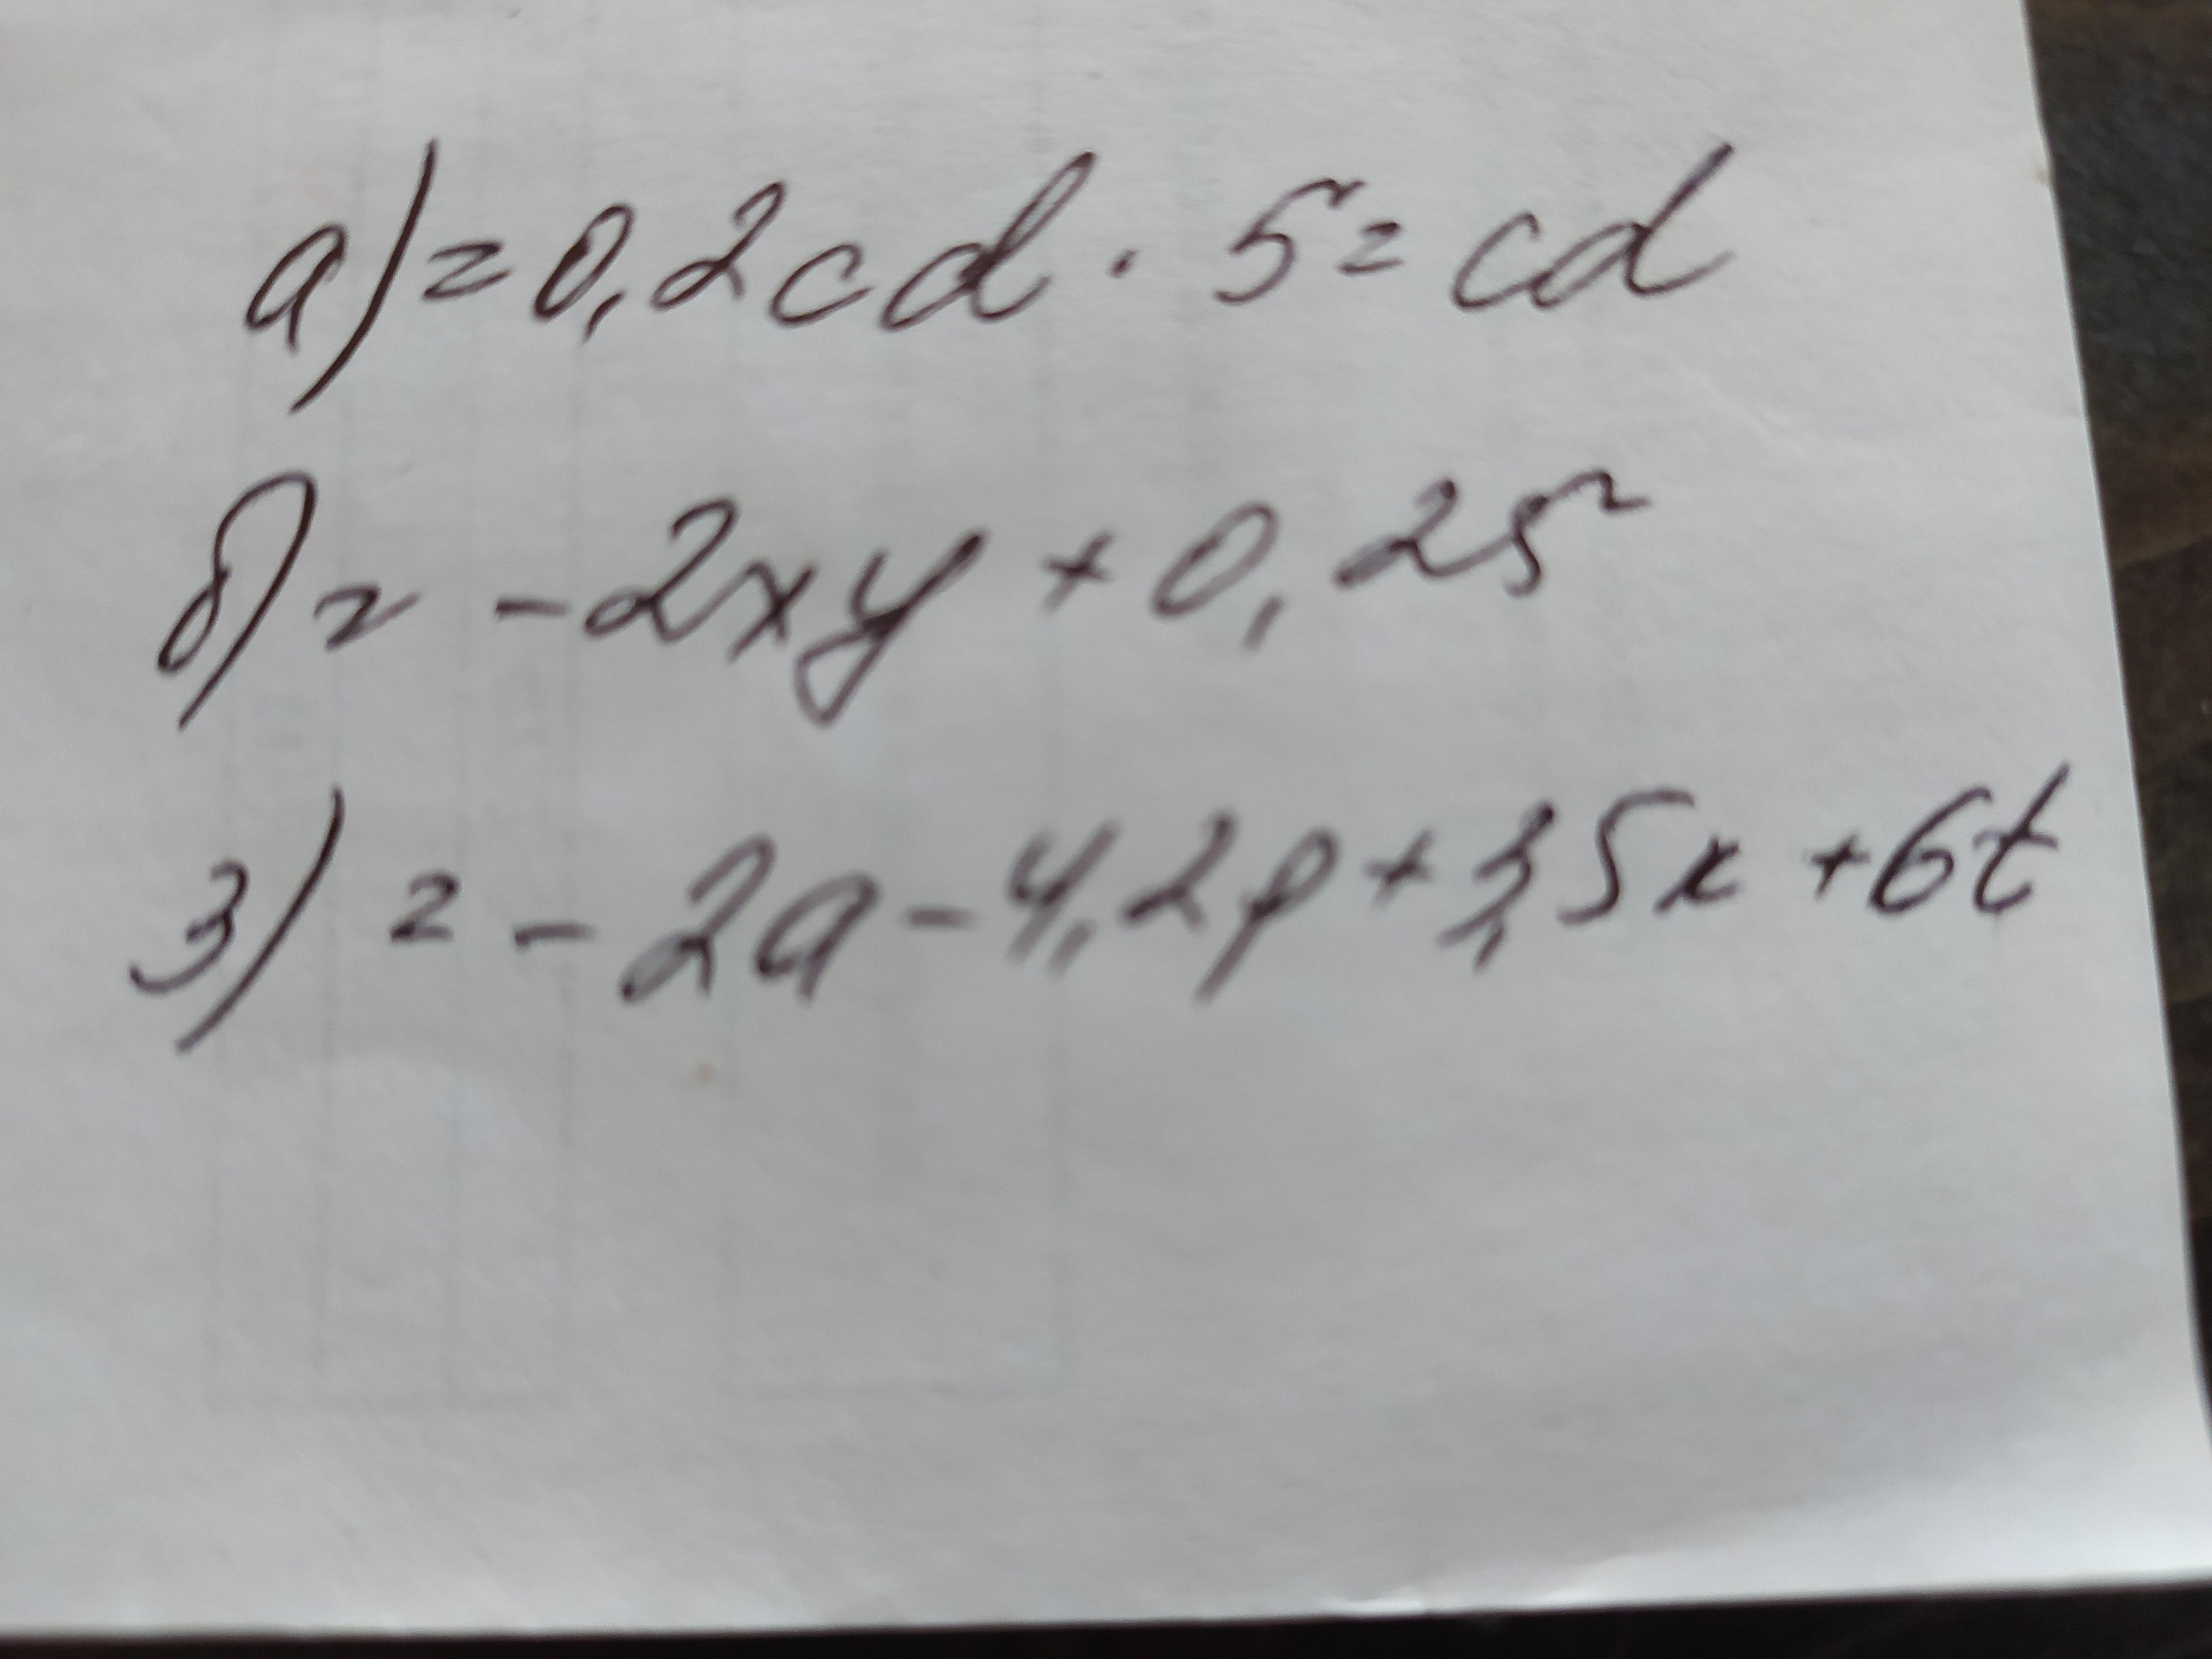 а) = 0,2cd · 5 = cd
б) = -2xy + 0,25
3) = -2a - 4,2p + 3,5x + 6t